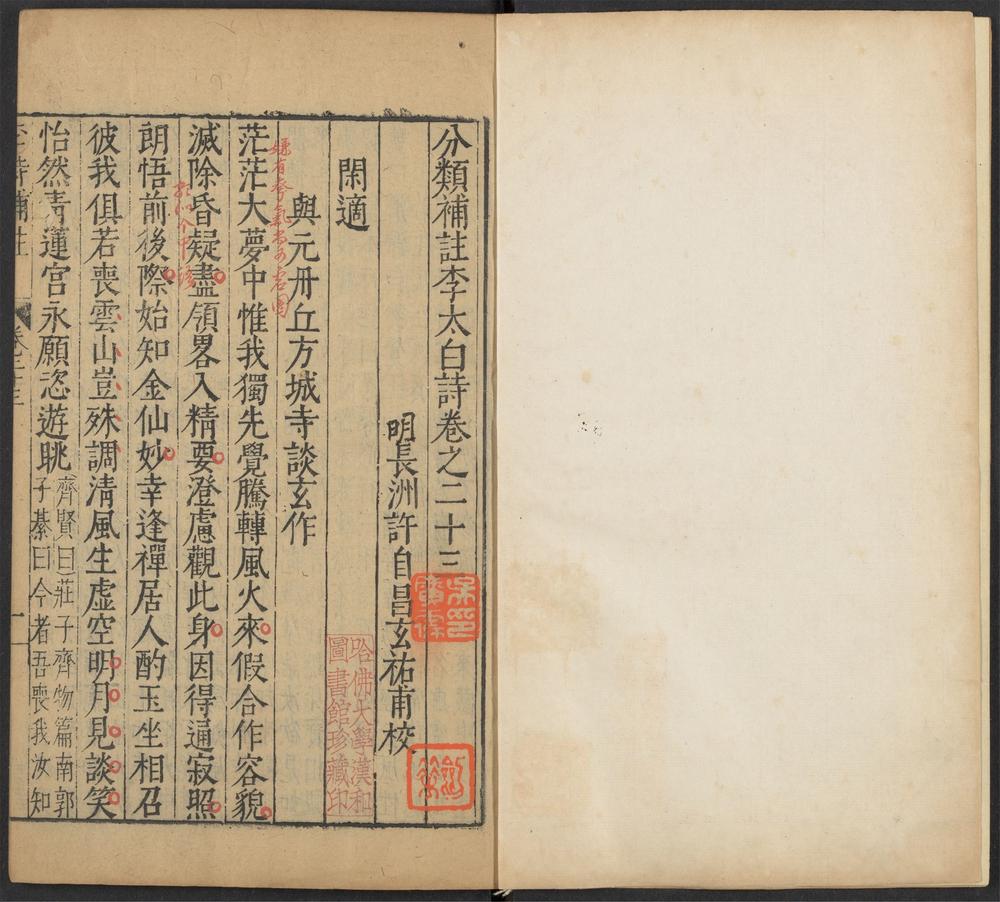 分類補註李太白詩卷之二十三
明長洲許自昌玄祐甫校
閑適
與元丹丘方城寺談玄作
茫茫大夢中惟我獨先覺騰轉風火來假合作容貌
滅除昏疑盡領畧入精要澄慮觀此身因得通寂照
朗悟前後際始知金仙妙幸逢禪居人酌玉坐相召
彼我俱若喪雲山豈殊調清風生虛空明月見談笑
怡然青蓮宮永願恣遊眺
齊賢曰莊子齊物篇南郭
子綦曰今者吾喪我汝知
李詩補註
卷二十三
一
哈佛大學漢和
圖書館珍藏印